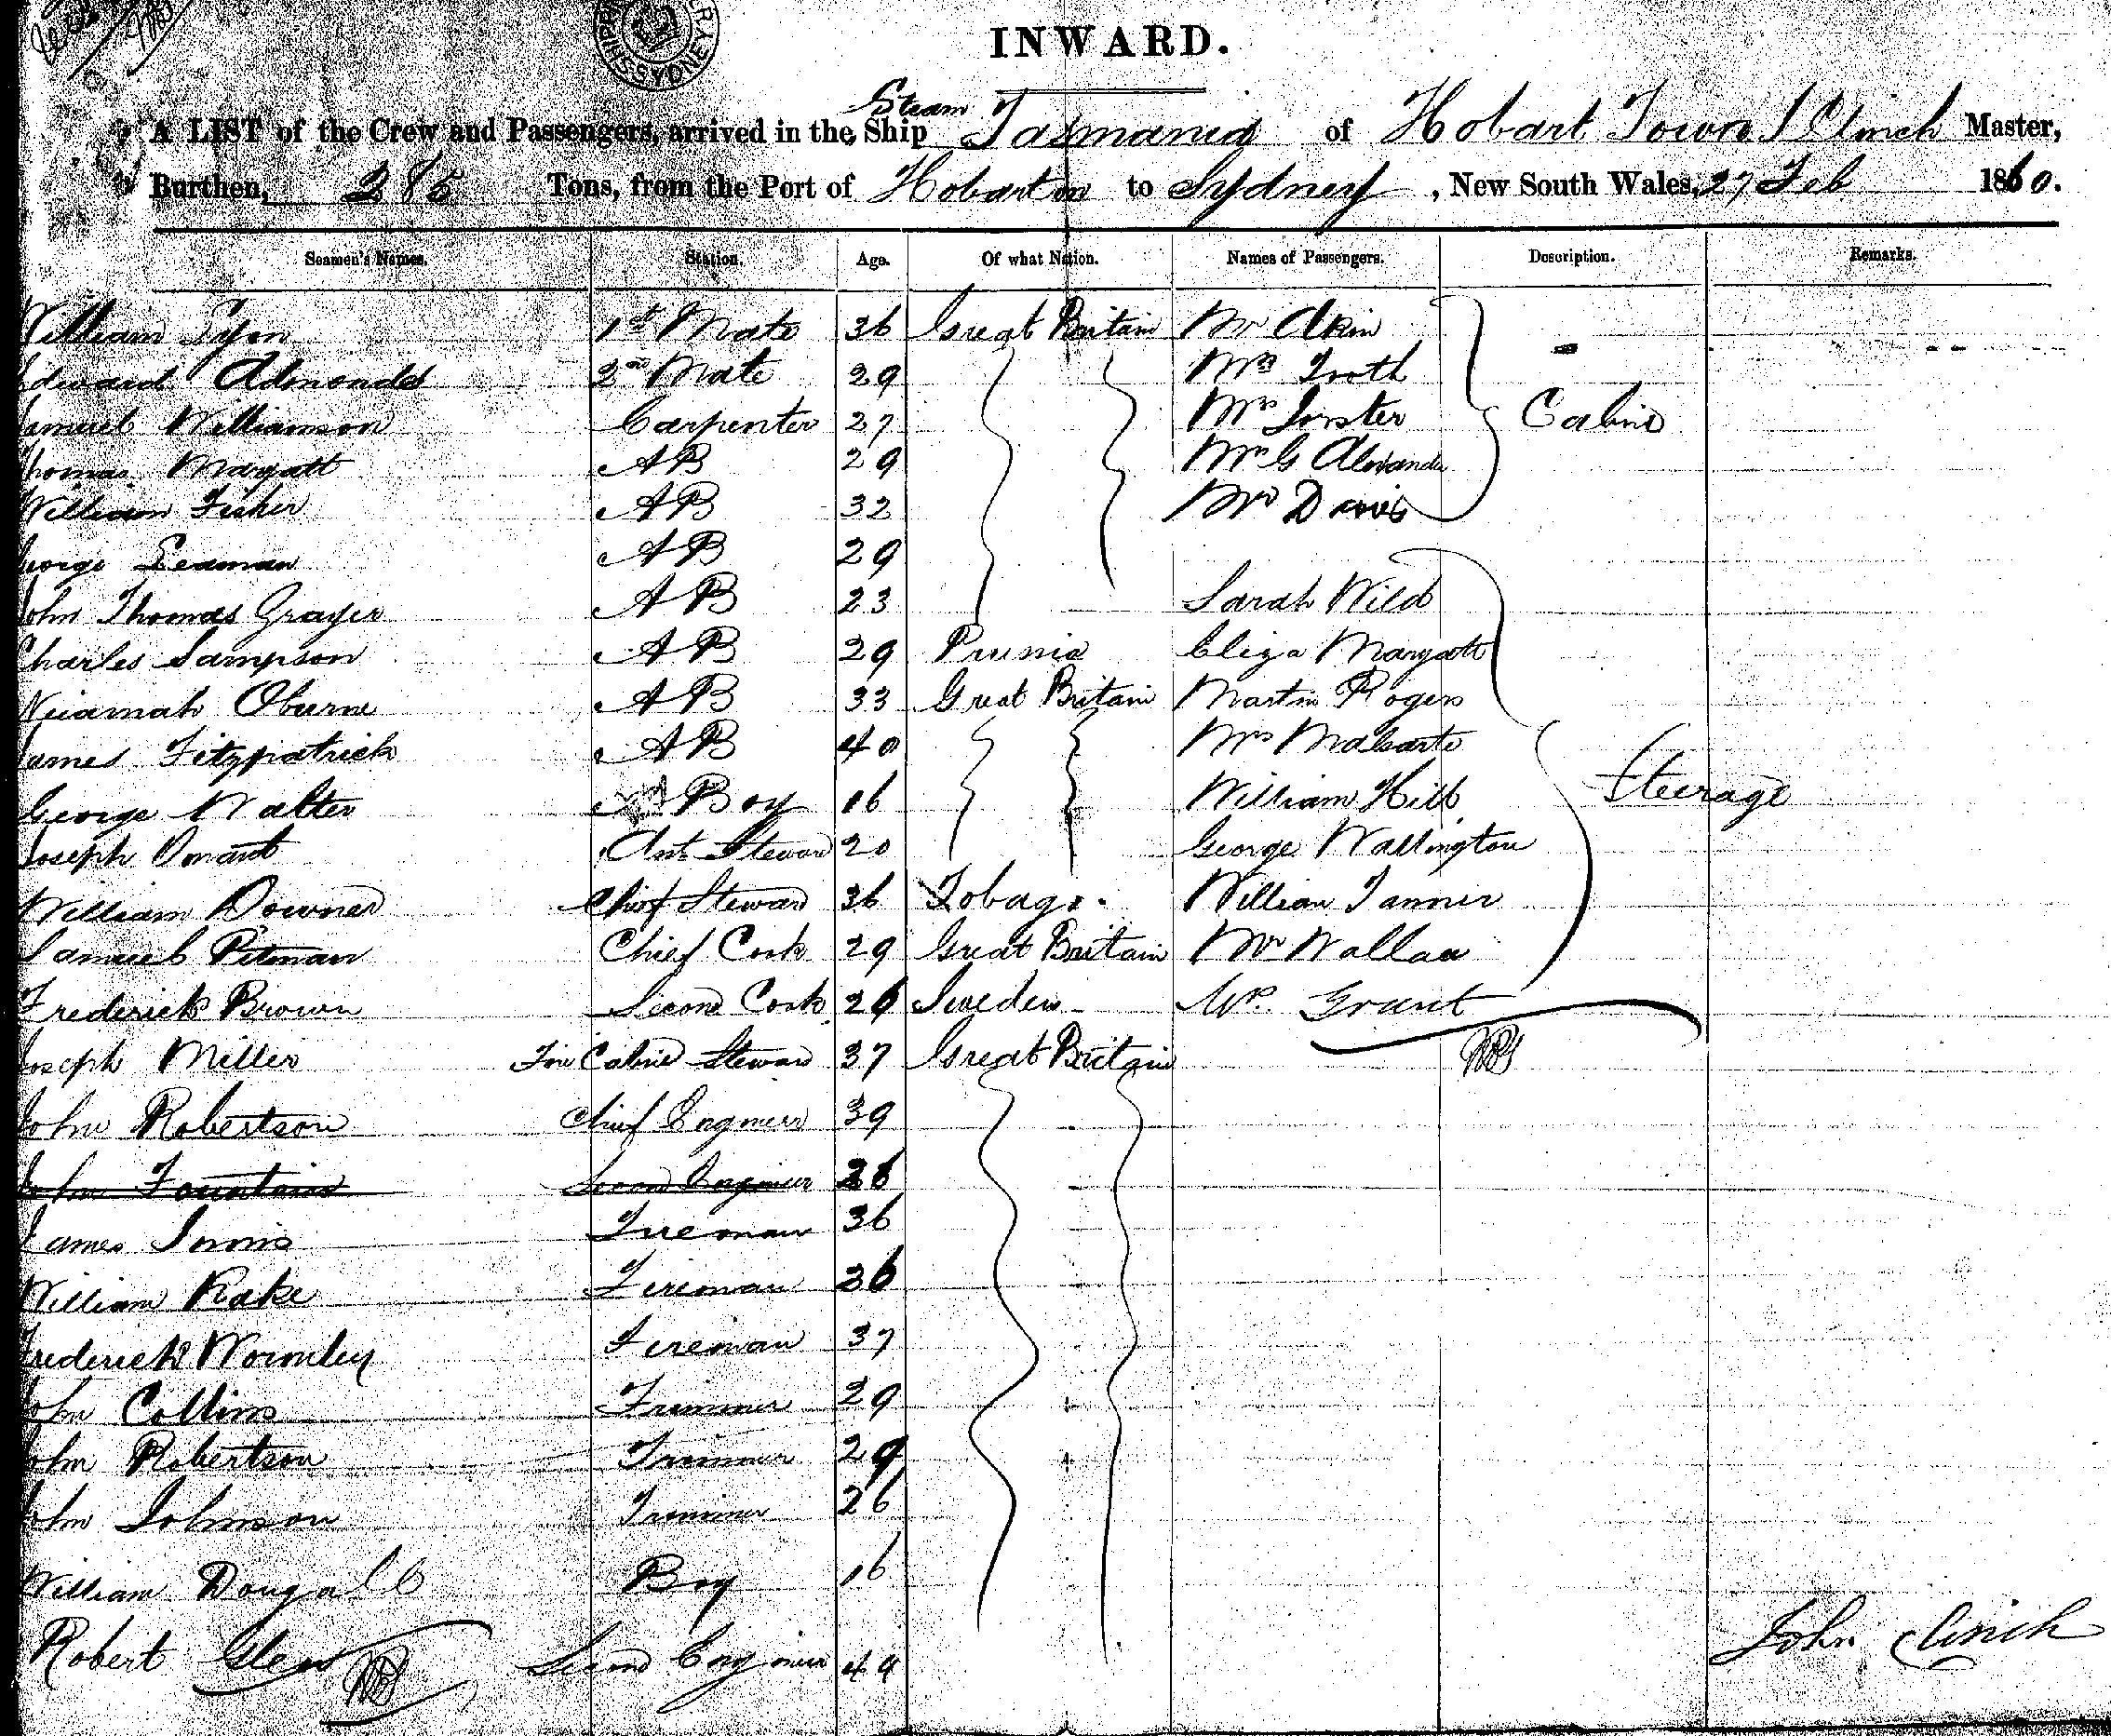 INWARD.
Steam
A LIST of the Crew and Passengers, arrived in the Ship Tasmania of Hobart Town J Clinch Master,
Burthen, 285 Tons, from the Port of Hobarton to Sydney, New South Wales, 27 Feb 1860.
Seamen's Names. Station. Age. Of what Nation. Names of Passengers. Description. Remarks.
William Lyon 1st Mate 36 Great Britain Mr Akin
Edward Admonds 2nd Mate 29 Mrs Troth
Samuel Williamson Carpenter 27 Mrs Forster Cabin
Thomas Maryatt AB 29 Mr G Alexander
William Fisher AB 32 Mr Davis
George Seaman AB 29
John Thomas Grayer AB 23 Sarah Wild
Charles Sampson AB 29 Prussia Eliza Maryatt
Oburne AB 33 Great Britain Martin Rogers
James Fitzpatrick AB 40 Mrs
George Walter Boy 16 William Hill Steerage
Joseph Steward 20 George Wallington
William Downer Chief Steward 36 Tobago William Tanner
Samuel Pitman Chief Cook 29 Great Britain Mr Wallace
Frederick Brown Second Cook 26 Sweden Mr. Grant
Joseph Miller Fore Cabin Steward 37 Great Britain
John Robertson Chief Engineer 39
John Fountain Second Engineer 36
James Fireman 36
William Rake Fireman 36
Frederick Wormley Fireman 37
John Collins Trimmer 29
John Robertson Trimmer 29
John Johnson Trimmer 26
William Dougall Boy 16
Robert Glen Second Engineer 49
John Clinch